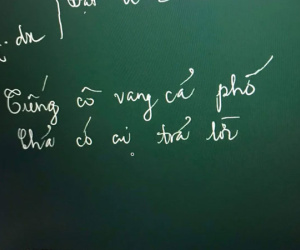 dx
Tiếng cô vang cả phố
Chả có ai trả lời